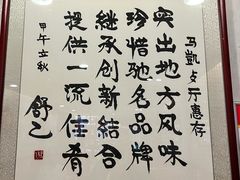 马凯贞厅惠存
突出地方风味
珍惜驰名品牌
继承创新结合
提供一流佳肴
甲午立秋
舒乙